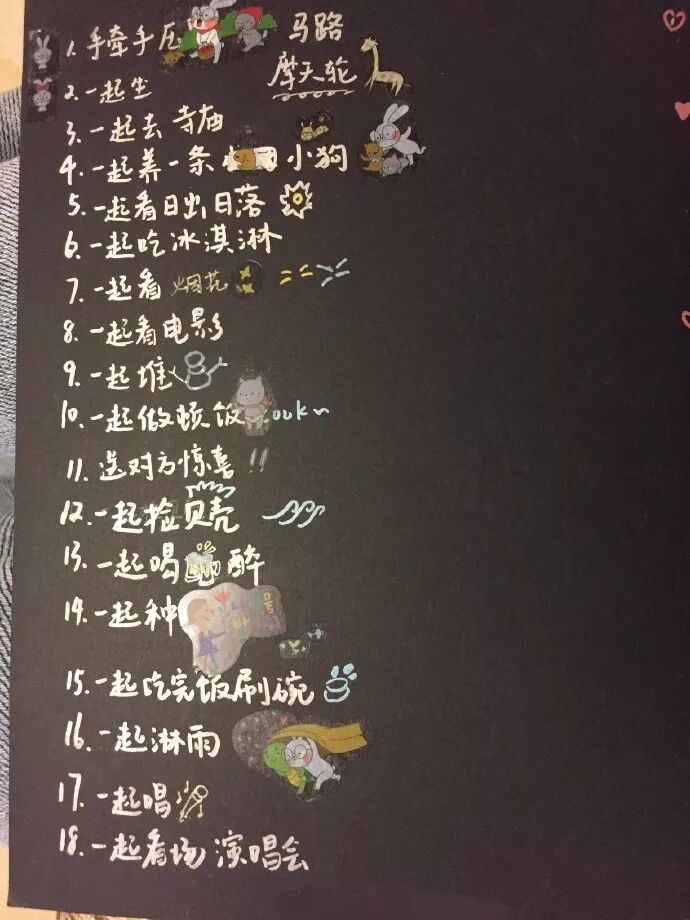 1. 手牵手压马路
2. 一起坐摩天轮
3. 一起去寺庙
4. 一起养一条小狗
5. 一起看日出日落
6. 一起吃冰淇淋
7. 一起看烟花
8. 一起看电影
9. 一起堆
10. 一起做顿饭 cook~
11. 送对方惊喜 !!
12. 一起捡贝壳
13. 一起喝醉
14. 一起种
15. 一起吃完饭刷碗
16. 一起淋雨
17. 一起唱
18. 一起看场演唱会